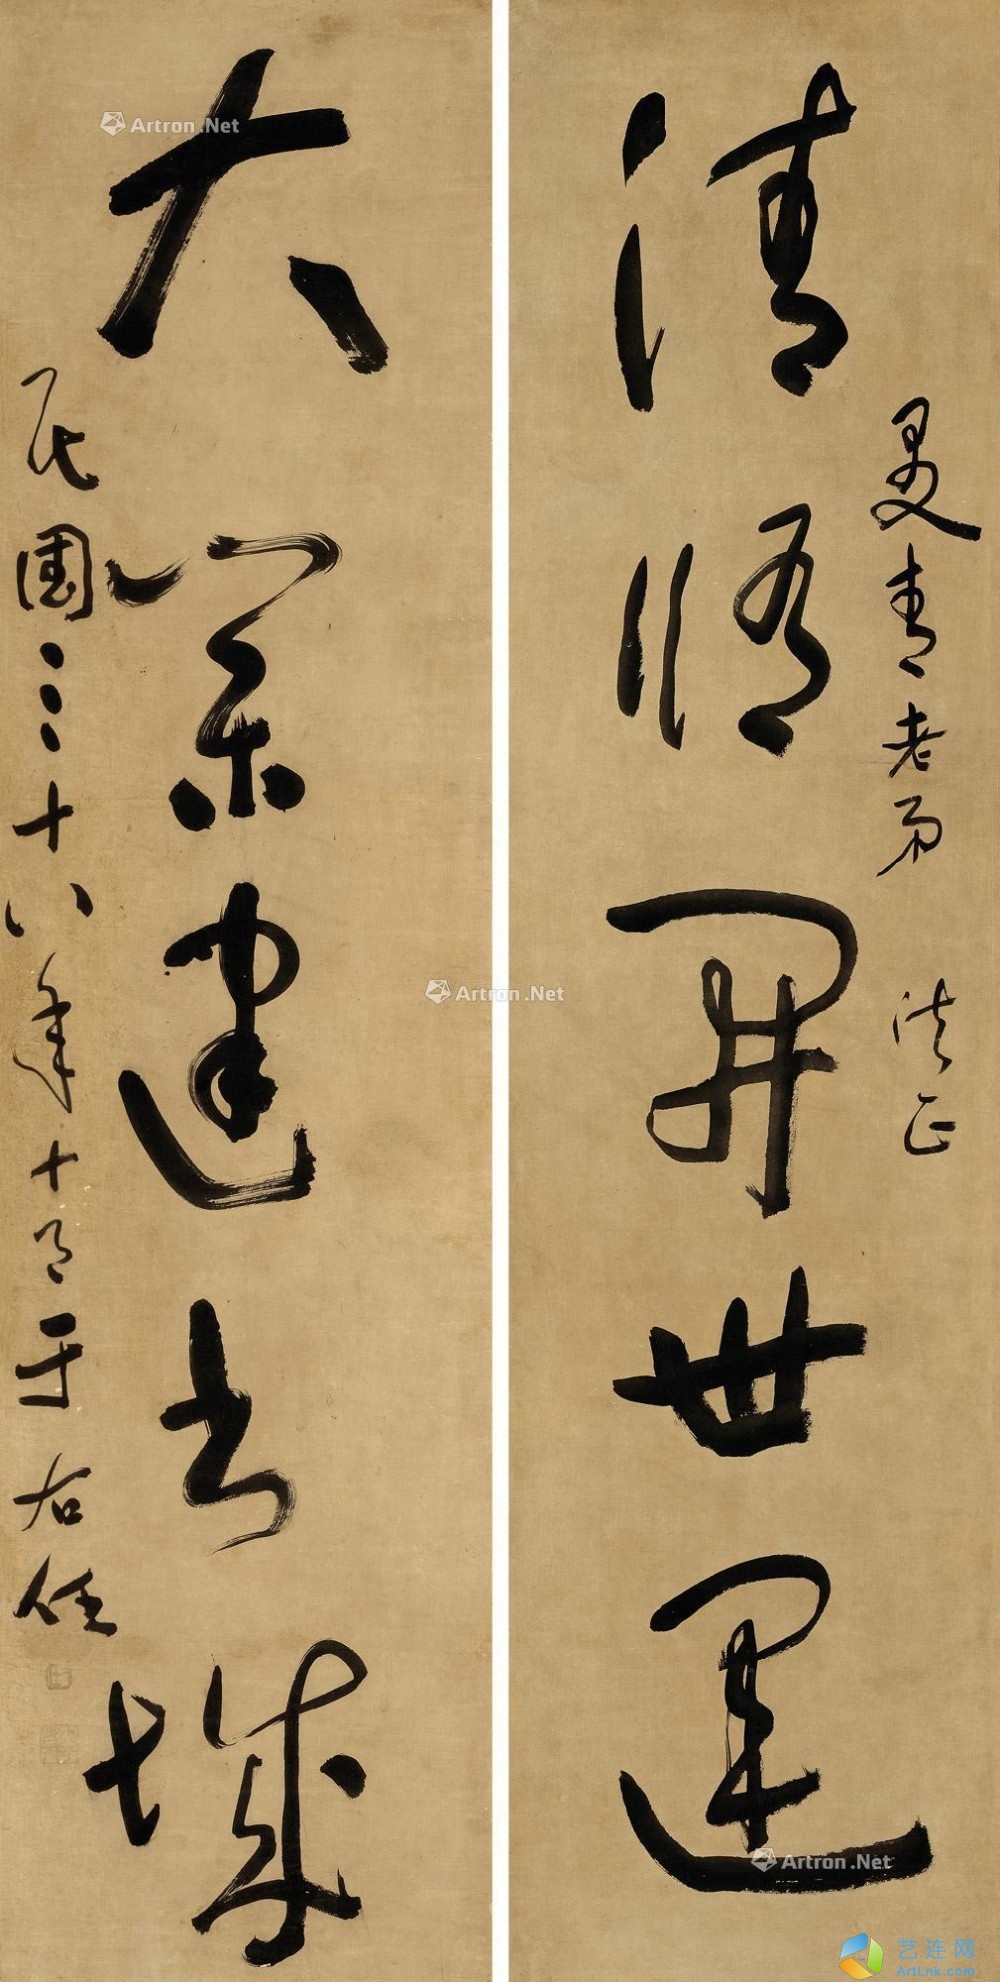 清脩開世運
曼青老弟 法正
大業建長城
民國三十八年十月于右任
Artron.Net
Artron.Net
Artron.Net
艺连网
ArtLnk.com